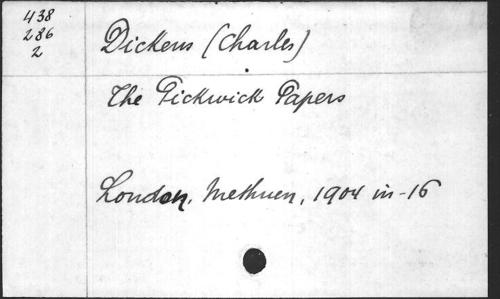 438
286
2
Dickens (Charles)
The Pickwick Papers
London, Methuen, 1904 in-16